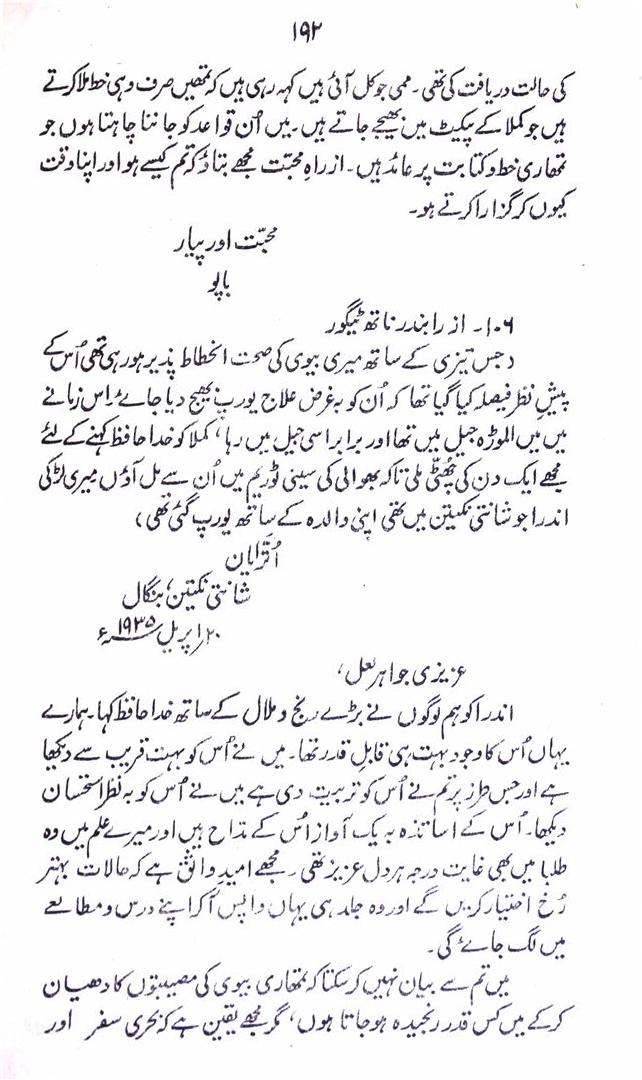 ۱۹۲
کی حالت دریافت کی تھی۔ ممی جو کل آئی ہیں کہہ رہی ہیں کہ تمھیں صرف وہی خط ملا کرتے
ہیں جو کملا کے پیکیٹ میں بھیجے جاتے ہیں۔ میں اُن قواعد کو جاننا چاہتا ہوں جو
تمھاری خط و کتابت پر عائد ہیں۔ از راہِ محبّت مجھے بتاؤ کہ تم کیسے ہو اور اپنا وقت
کیوں کر گزارا کرتے ہو۔
محبّت اور پیار
باپو
۱۰۶۔ از رابندر ناتھ ٹیگور
(جس تیزی کے ساتھ میری بیوی کی صحت انحطاط پذیر ہو رہی تھی اُس کے
پیشِ نظر فیصلہ کیا گیا تھا کہ اُن کو بہ غرض علاج یورپ بھیج دیا جائے۔ اس زمانے
میں میں الموڑہ جیل میں تھا اور برابر اسی جیل میں رہا، کملا کو خدا حافظ کہنے کے لئے
مجھے ایک دن کی چھُٹّی ملی تاکہ بھوالی کی سینی ٹوریم میں اُن سے مل آؤں میری لڑکی
اندرا جو شانتی نکیتن میں تھی اپنی والدہ کے ساتھ یورپ گئی تھی)
اُترایان
شانتی نکیتن، بنگال
۲۰ اپریل ۱۹۳۵ء
عزیزی جواہر لعل،
اندرا کو ہم لوگوں نے بڑے رنج و ملال کے ساتھ خدا حافظ کہا۔ ہمارے
یہاں اُس کا وجود بہت ہی قابلِ قدر تھا۔ میں نے اُس کو بہت قریب سے دیکھا
ہے اور جس طرز پر تم نے اُس کو تربیت دی ہے میں نے اُس کو بہ نظر استحسان
دیکھا۔ اُس کے اساتذہ بہ یک آواز اُس کے مدّاح ہیں اور میرے علم میں وہ
طلبا میں بھی غایت درجہ ہر دل عزیز تھی۔ مجھے امیدِ واثق ہے کہ حالات بہتر
رُخ اختیار کریں گے اور وہ جلد ہی یہاں واپس آ کر اپنے درس و مطالعے
میں لگ جائے گی۔
میں تم سے بیان نہیں کر سکتا کہ تمھاری بیوی کی مصیبتوں کا دھیان
کر کے میں کس قدر رنجیدہ ہو جاتا ہوں، مگر مجھے یقین ہے کہ بحری سفر اور